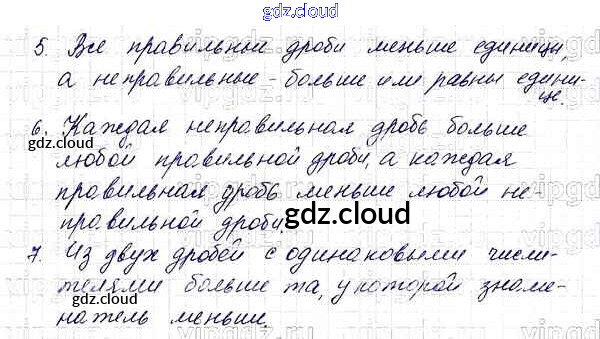 gdz.cloud
5. Все правильные дроби меньше единицы,
а неправильные - больше или равны едини-
це.
6. Каждая неправильная дробь больше
gdz.cloud
любой правильной дроби, а каждая
gdz.cloud
правильная дробь меньше любой не-
правильной дроби.
gdz.cloud
7. Из двух дробей с одинаковыми числи-
телями больше та, у которой знаме-
gdz.cloud
gdz.cloud
натель меньше.